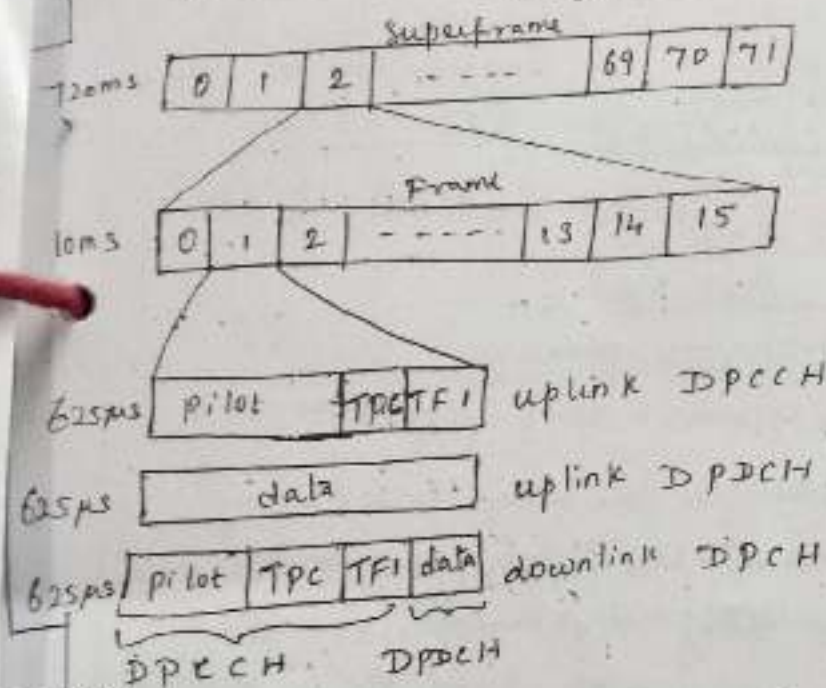 Superframe
720ms 0 1 2 ----- 69 70 71
Frame
10ms 0 1 2 ----- 13 14 15
625μs pilot TPC TFI uplink DPCCH
625μs data uplink DPDCH
625μs pilot TPC TFI data downlink DPCH
DPCCH DPDCH